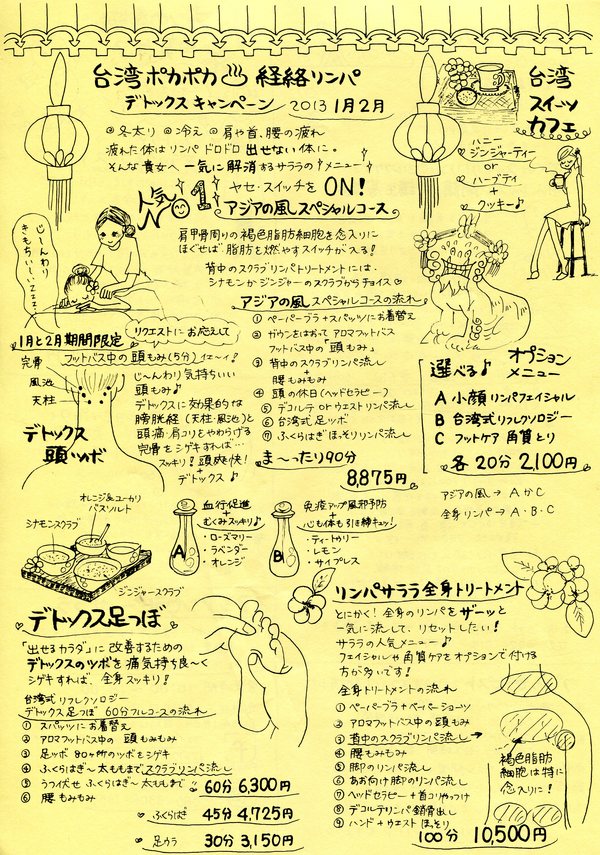 台湾ポカポカ♨経絡リンパ
デトックスキャンペーン 2013 1月2月
◎冬太り ◎冷え ◎肩や首、腰の疲れ
疲れた体は リンパ ドロドロ 出せない体に。
そんな貴女へ 一気に解消するサララの メニュー
人気 1
ヤセ・スイッチを ON!
アジアの風スペシャルコース
肩甲骨周りの 褐色脂肪細胞を 念入りに
ほぐせば 脂肪を燃やすスイッチが入る!
背中のスクラブリンパトリートメントには
シナモンか ジンジャーのスクラブから チョイス♡
台湾
スイーツ
カフェ
ハニー
ジンジャーティー
or
ハーブティ
+
クッキー♪
じ〜んわり
きもちいい、
zzz
1月と2月 期間限定
リクエストにお応えして
フットバス中の 頭もみ(5分) イェ〜イ!
完骨
風池
天柱
デトックス
頭ツボ
じ〜んわり 気持ちいい
頭もみ♪
デトックスに効果的な
膀胱経 (天柱・風池)と
頭痛・肩コリをやわらげる
完骨をシゲキすれば…
スッキリ! 頭爽快!
+
デトックス♪
アジアの風スペシャルコースの流れ
① ペーパーブラ+スパッツにお着替え
② ガウンをはおって アロマフットバス
フットバス中の「頭もみ」
③ 背中のスクラブリンパ流し
+
腰もみもみ
④ 頭の休日(ヘッドセラピー)
⑤ デコルテ or ウエストリンパ流し
⑥ 台湾式足ツボ
⑦ ふくらはぎほっそりリンパ流し
ま〜ったり90分
8,875円
選べる♪ オプション
メニュー
A 小顔リンパフェイシャル
B 台湾式リフレクソロジー
C フットケア 角質とり
各20分 2,100円
アジアの風 → A か C
全身リンパ → A・B・C
オレンジ&ユーカリ
バスソルト
シナモンスクラブ
ジンジャースクラブ
A
血行促進
+
むくみスッキリ♪
・ローズマリー
・ラベンダー
・オレンジ
B
免疫アップ風邪予防
+
心も体も引き締キュッ!
・ティートゥリー
・レモン
・サイプレス
デトックス足つぼ
「出せるカラダ」に改善するための
デトックスのツボを 痛気持ち良〜く
シゲキすれば、全身スッキリ!
台湾式リフレクソロジー
デトックス足つぼ 60分フルコースの流れ
① スパッツにお着替え
② アロマフットバス中の 頭もみもみ
③ 足ツボ 80ヶ所のツボをシゲキ
④ ふくらはぎ〜太ももまでスクラブリンパ流し
⑤ うつ伏せ ふくらはぎ〜太ももまで
⑥ 腰もみもみ
60分 6,300円
ふくらはぎ 45分 4,725円
足ウラ 30分 3,150円
リンパサララ全身トリートメント
とにかく! 全身のリンパを ザーッと
一気に流して、リセットしたい!
サララの人気メニュー♪
フェイシャルや角質ケアをオプションで付ける
方が多いです!
全身トリートメントの流れ
① ペーパーブラ+ペーパーショーツ
② アロマフットバス中の 頭もみ
③ 背中のスクラブリンパ流し
④ 腰もみもみ
⑤ 脚のリンパ流し
⑥ あお向け脚のリンパ流し
⑦ ヘッドセラピー+首コリやっつけ
⑧ デコルテリンパ 鎖骨出し
⑨ ハンド+ウエスト ほっそり
100分 10,500円
褐色脂肪
細胞は特に
念入りに!